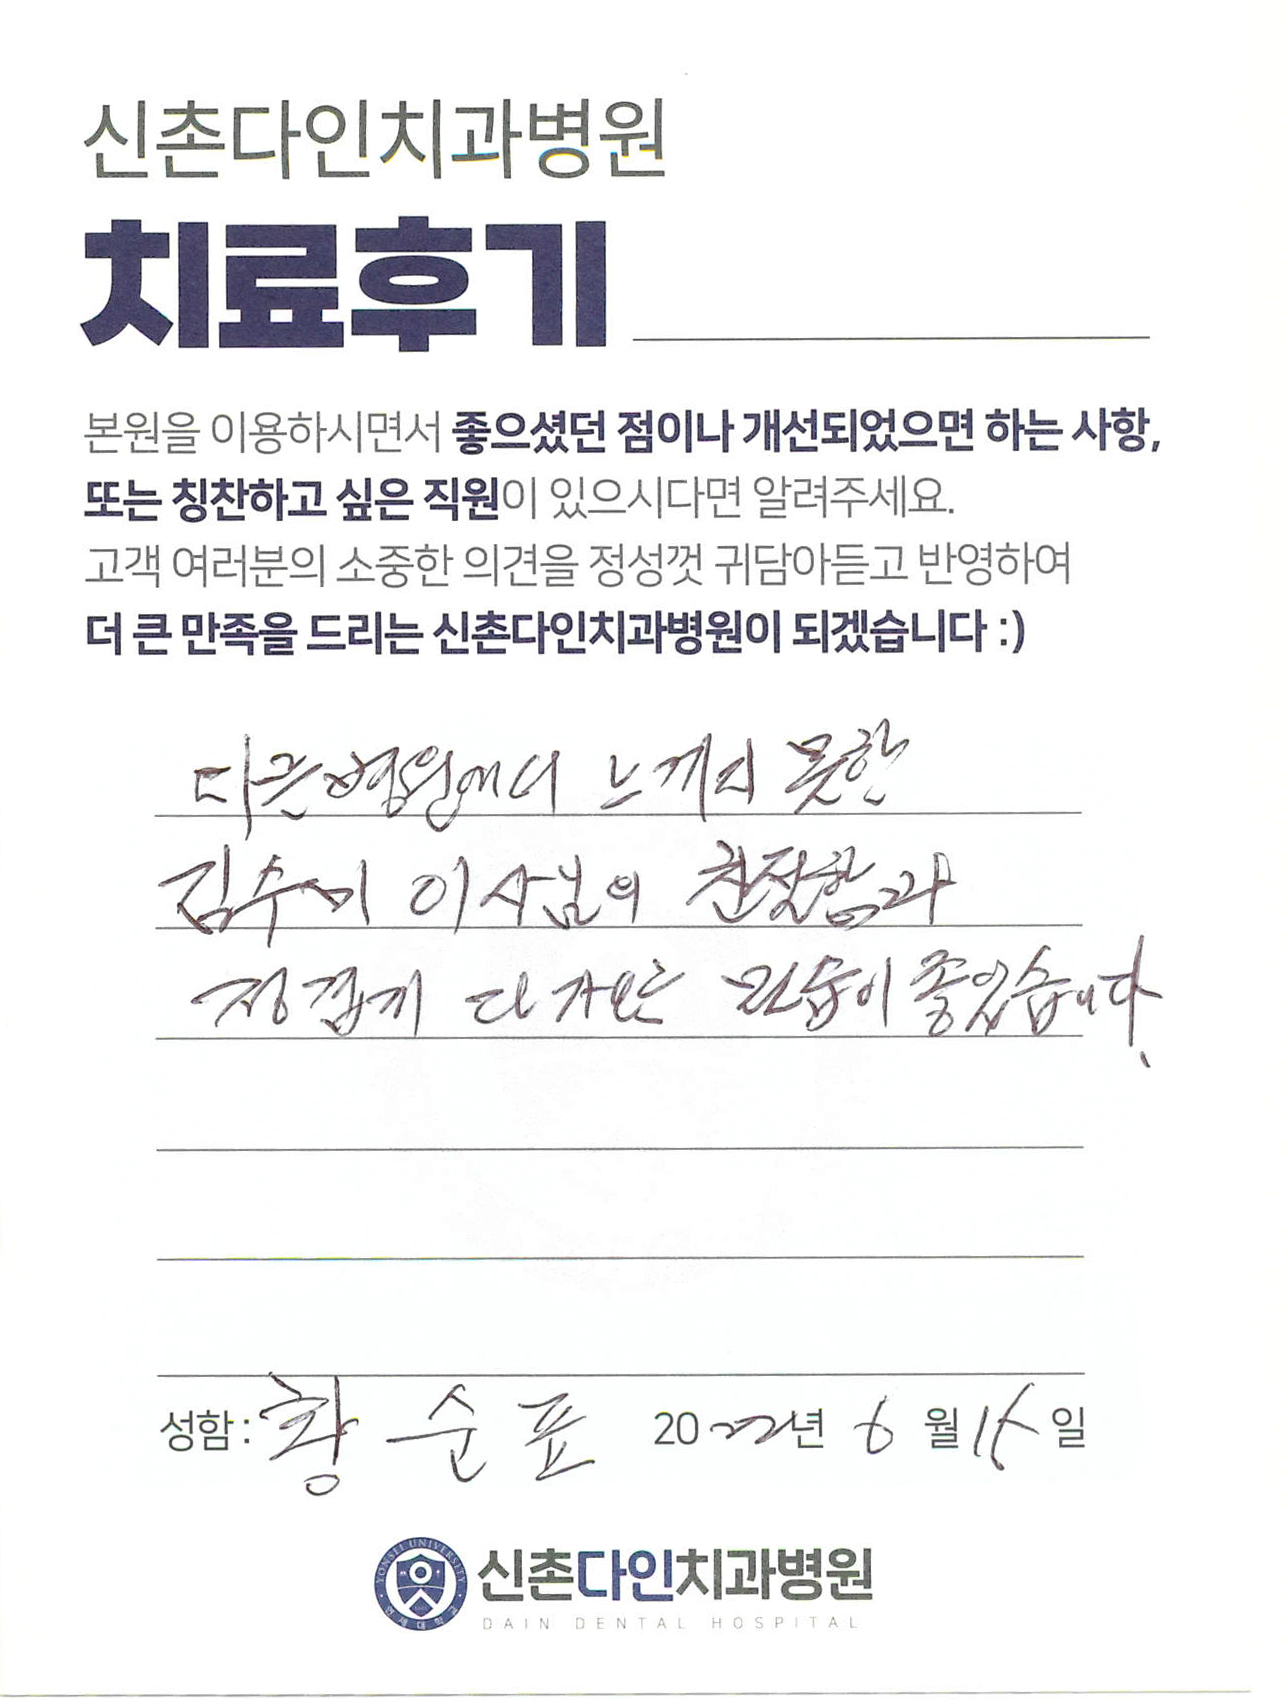 신촌다인치과병원
치료후기
본원을 이용하시면서 좋으셨던 점이나 개선되었으면 하는 사항,
또는 칭찬하고 싶은 직원이 있으시다면 알려주세요.
고객 여러분의 소중한 의견을 정성껏 귀담아듣고 반영하여
더 큰 만족을 드리는 신촌다인치과병원이 되겠습니다 :)
다른병원에서 느끼지 못한
김수미 이사님의 친절함과
정겹게 다가오는 모습이 좋았습니다.
성함 : 황 순 표 2022년 6 월 15 일
YONSEI UNIVERSITY
연세대학교
신촌다인치과병원
DAIN DENTAL HOSPITAL